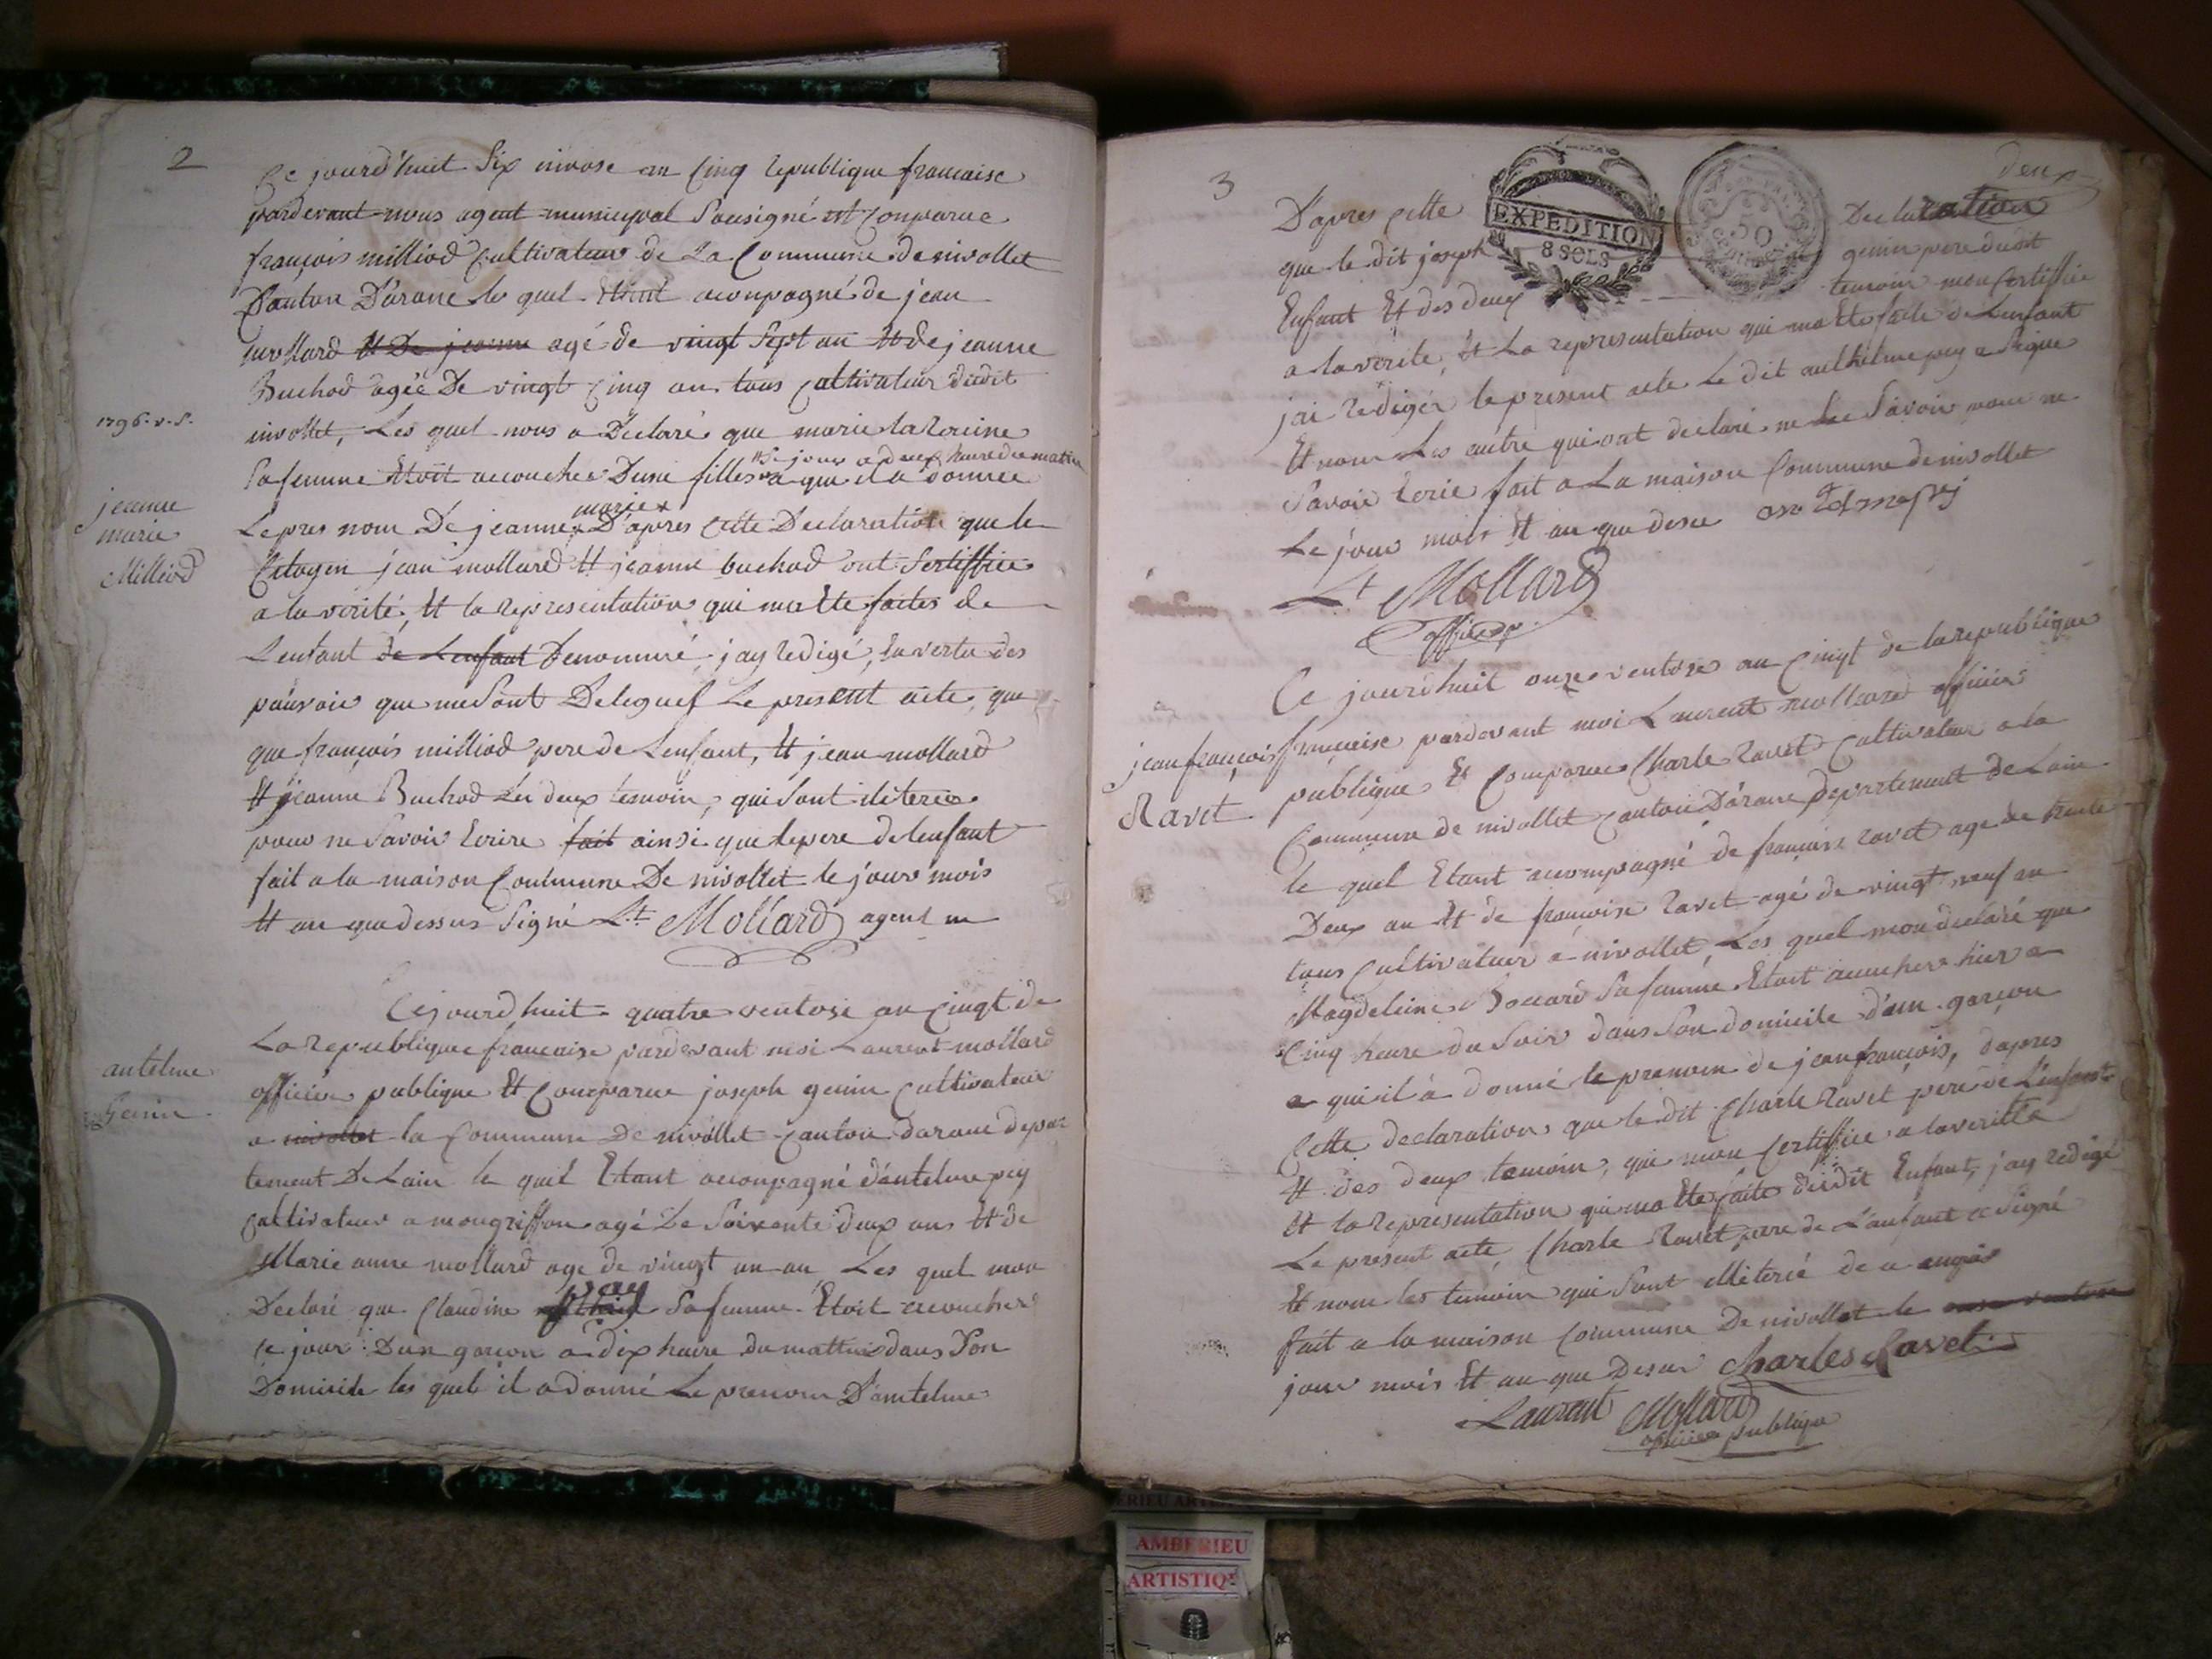 2
Ce jourd'huit Six nivose an Cinq republique francaise
pardevant nous agent municipal Sousigné est Comparue
françois milliod Cultivateur de La Commune de nivollet
Canton D'arane le quel Etant acompagné de jean
mollard et De jeanne agé de vingt Sept an et de jeanne
Buchod agée De vingt Cinq an tous Cultivateur dudit
1796. v. S.
nivollet, Les quel nous a Déclaré que marie
Ce jour a deux heure du matin
Sa femme Etoit acouchée Dune filles a qui il a donnée
jeanne
marie
Milliod
marie
Le pres nom De jeanne D'apres cette Declaration que le
Citoyen jean mollard et jeanne buchod ont Sertiffiee
a la vérité, Et la representation qui ma Ete faites de
L'enfant de L'enfant Denommé j'ay redigé, en vertu des
pouvoir que me Sont Delegues Le present acte, que
que françois milliod pere de Lenfant, Et jean mollard
Et jeanne Buchod Les deux temoin, qui Sont iliteree
pour ne Savoir Ecrire fait ainsi que le pere de lenfant
fait a la maison Commune De nivollet le jour mois
Et an que dessus Signé Lt Mollard agent m
antelme
Genin
Cejourdhuit quatre ventose an Cinqt de
La republique francaise pardevant moi Laurent mollard
officier publique Et Comparue joseph genin Cultivateur
a nivollet la Commune De nivollet Canton darane depar
tement De Lain le quel Etant acompagné d'antelme pey
Cultivateur a mongriffon agé De Soixente deux ans Et de
Marie anne mollard age de vingt un an Les quel mon
Declaré que Claudine pay Sa femme Etoit acoucher
ce jour Dun garcon a dix heure du mattin dans Son
Domicile les quel il a donné Le prenom D'antelme
3
deux
EXPEDITION
8 SOLS
50
D'apres cette Declaration
que le dit joseph genin pere dudit
Enfant Et des deux temoin mon Certiffie
a la verité, Et La representation qui ma Ete faite de Lenfant
jai redigér le present acte Le dit anthelme pey a Signe
Et nom Les autre qui ont declaré ne Le Savoir pour ne
Savoir Ecrie fait a La maison Commune de nivollet
Le jour mois Et an que desu
Lt Mollard
officier
jean françois
Ravet
Ce jourd'huit onze ventose an Cinqt de la republique
française pardevant moi Laurent mollard officier
publique Et Comparue Charle ravet Cultivateur a la
Commune de nivollet Canton D'arane Departement de Lain
le quel Etant acompagné de françois ravet age de trente
Deux an Et de françoise ravet agé de vingt neuf an
tous Cultivateur a nivollet, Les quel mon declaré que
Magdeleine Bocard Sa femme Etoit acoucher hier a
Cinq heure du Soir dans Son domicile d'un garçon
a qui il a donné le prenom de jean françois, dapres
Cette declaration que le dit Charle Ravet pere de L'enfant
Et des deux temoin, qui mon Certiffiee a la veritté
Et la representation qui ma Ete faite du dit Enfant, j'ay redigé
Le present acte, Charle Ravet pere de L'anfant a Signé
Et nom les temoin qui Sont illiterié de a enquis
fait a la maison Commune De nivollet le onze ventose
jour mois Et an que Desus Charles Ravet
Laurent Mollard
officier publique
AMBERIEU
ARTISTIQ